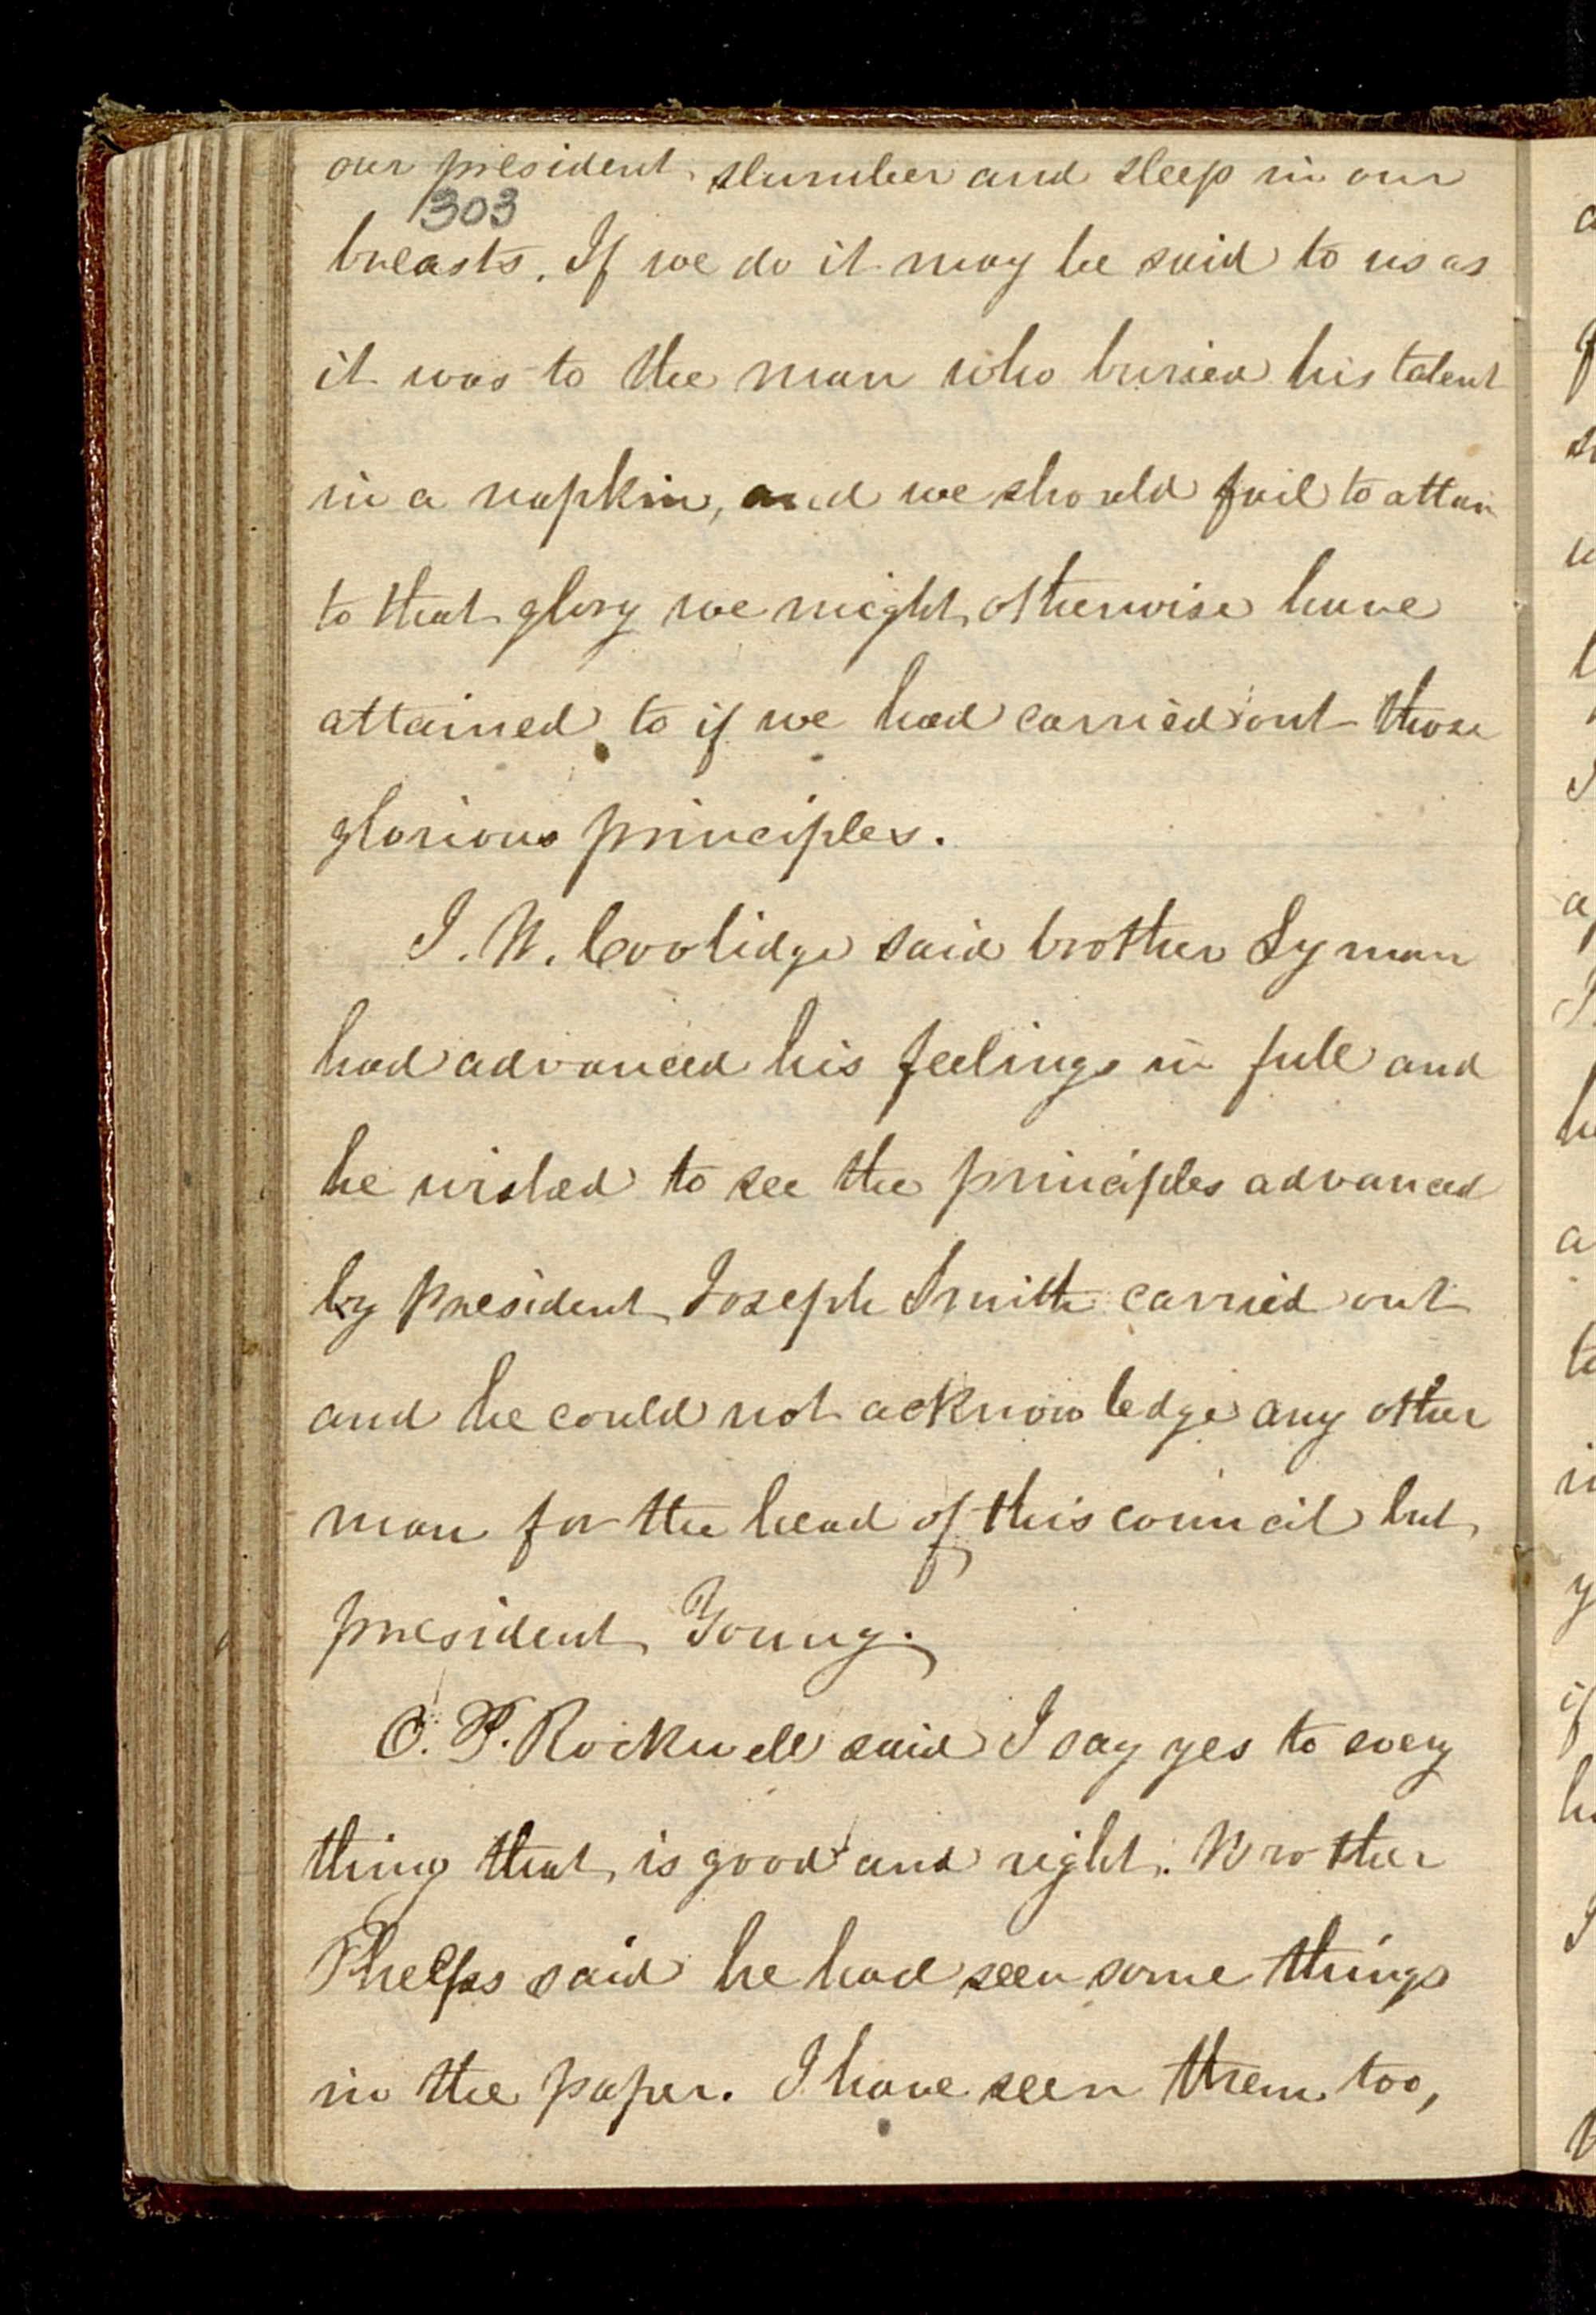 our president slumber and sleep in our
303
breasts. If we do it may be said to us as
it was to the man who buried his talent
in a napkin, and we should fail to attain
to that glory we might otherwise have
attained to if we had carried out those
glorious principles.
J. W. Coolidge said brother Lyman
had advanced his feelings in full and
he wished to see the principles advanced
by president Joseph Smith carried out
and he could not acknowledge any other
man for the head of this council but
president Young.
O. P. Rockwell said I say yes to every
thing that is good and right. Brother
Phelps said he had seen some things
in the paper. I have seen them too,